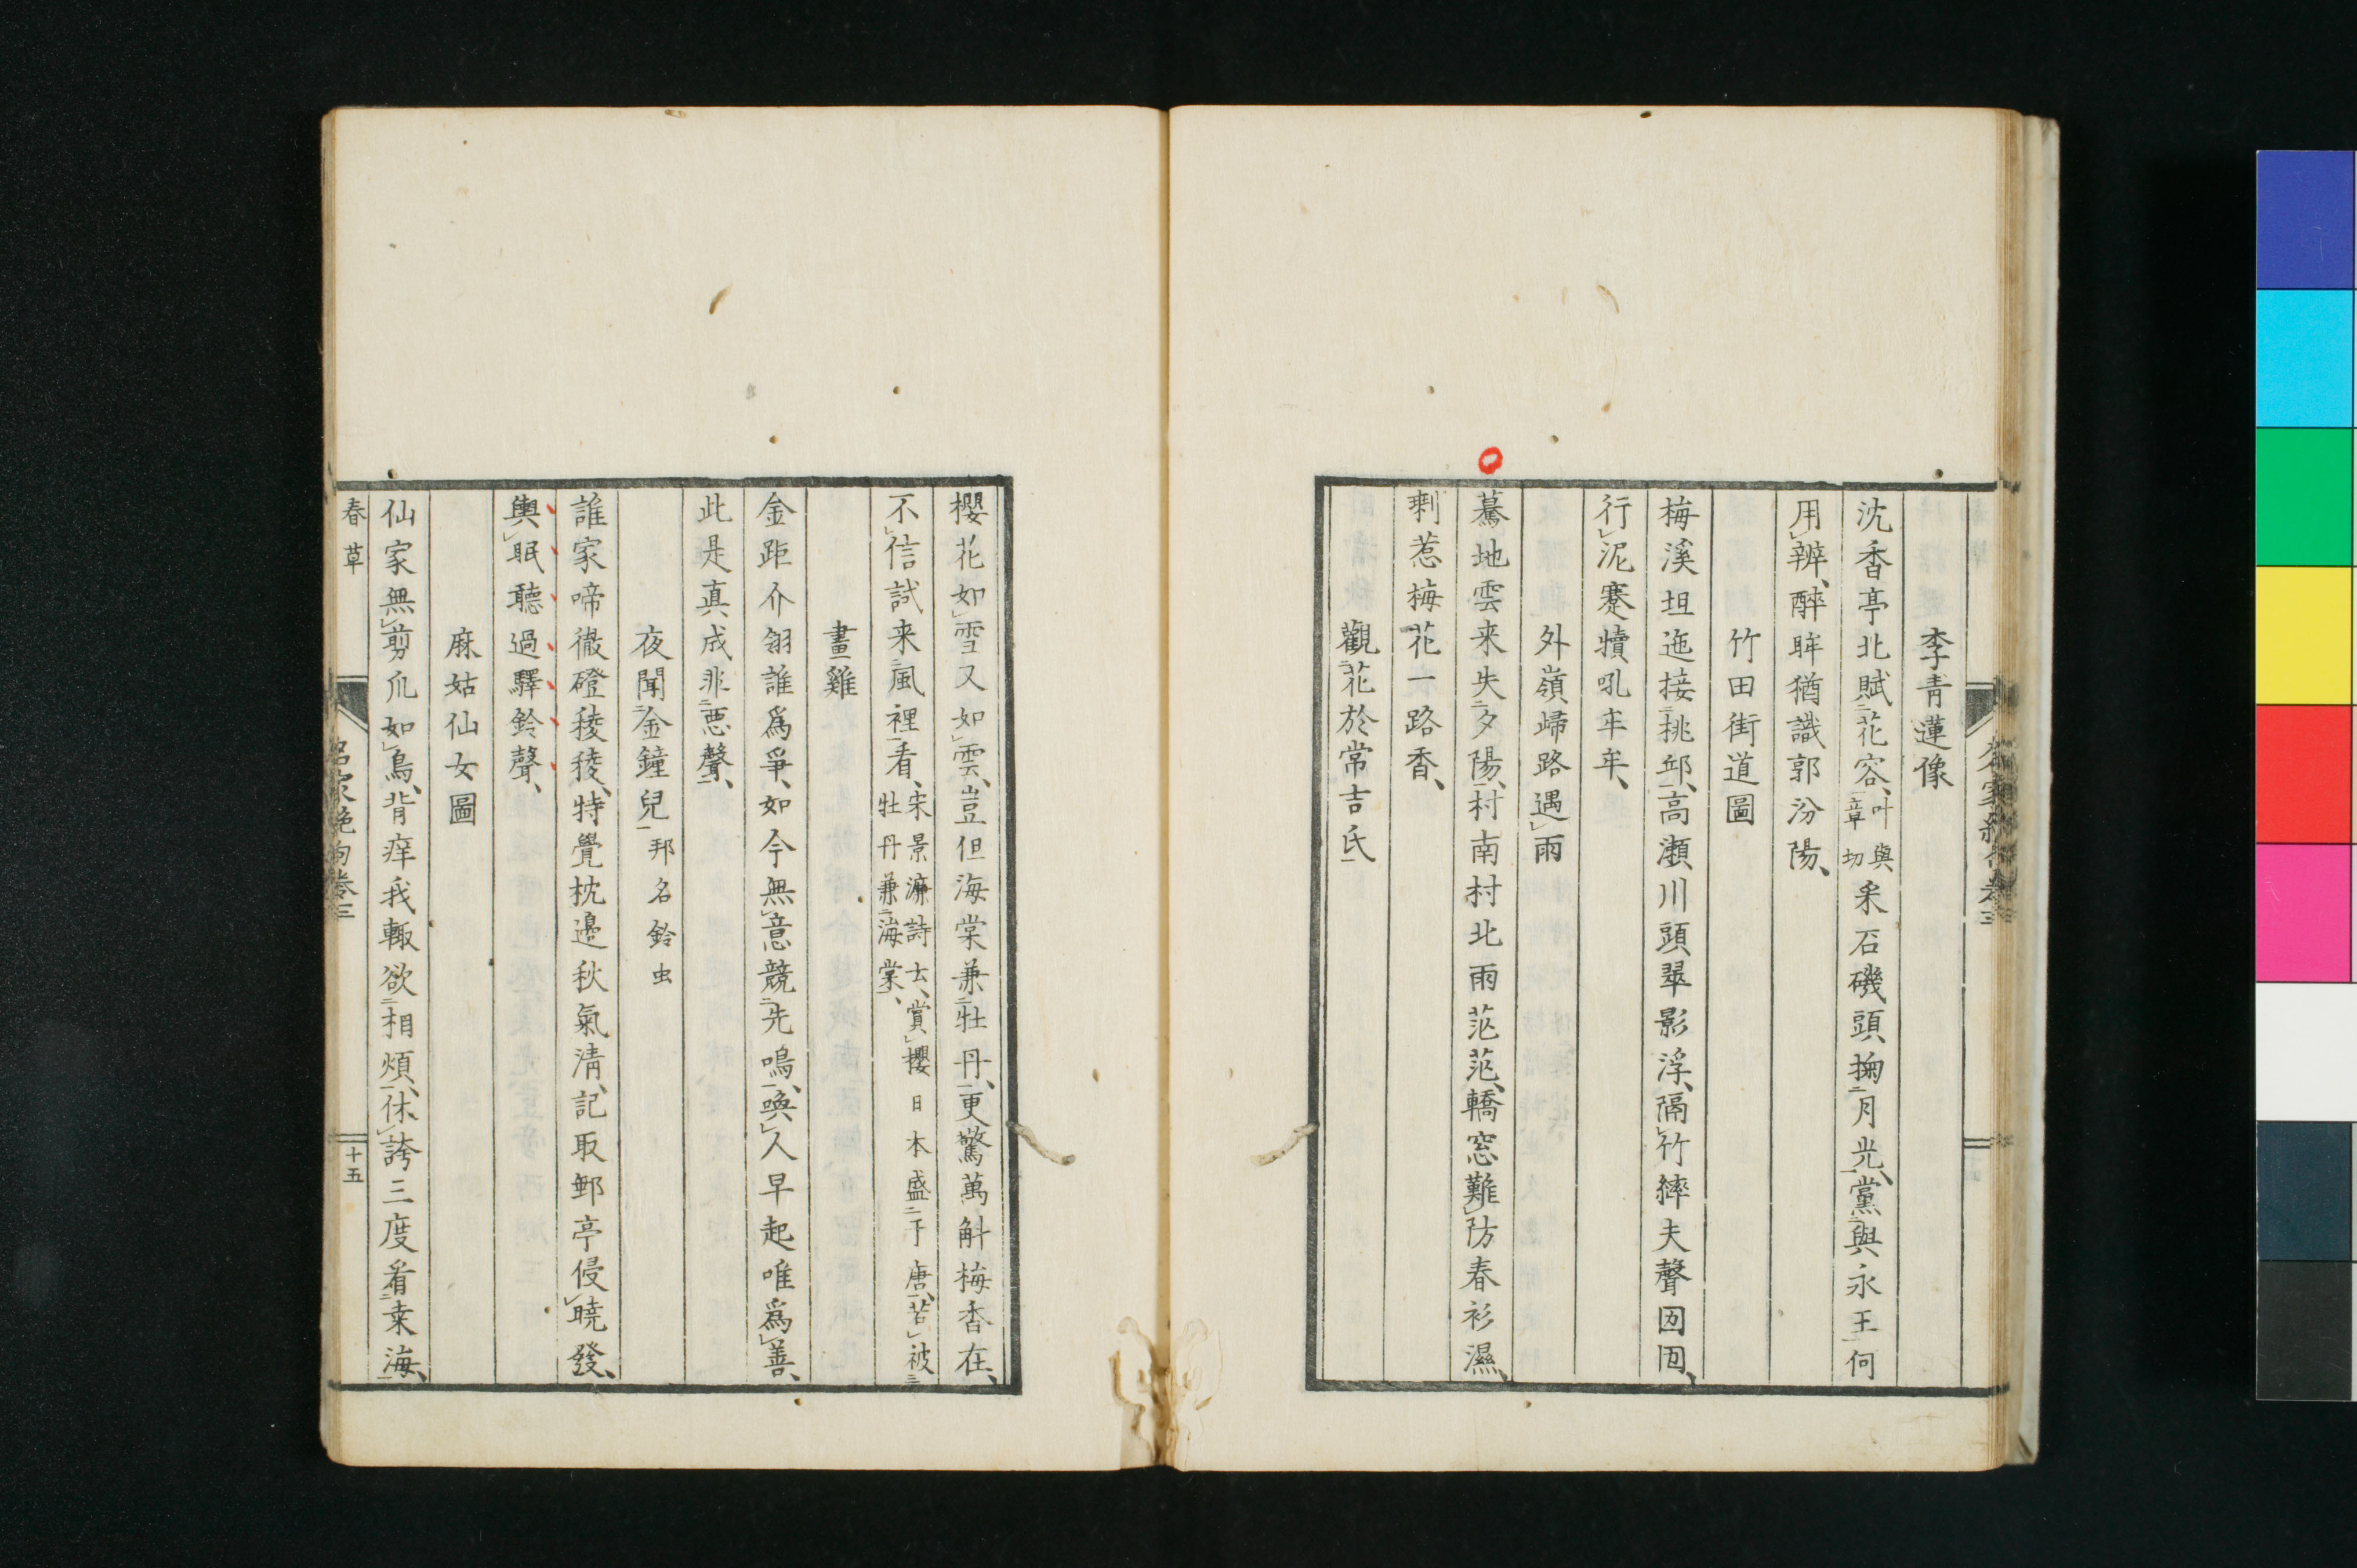 李青蓮像
沈香亭北賦花容、叶與章切采石磯頭掬月光、黨與永王何
用辨、醉眸猶識郭汾陽、
竹田街道圖
梅溪坦迤接挑邱、高瀬川頭翠影浮、隔竹縴夫聲囬囬、
行泥蹇犢吼牟牟、
外嶺歸路遇雨
驀地雲来失夕陽、村南村北雨茫茫、轎窓難防春衫濕、
剰惹梅花一路香、
觀花於常吉氏
櫻花如雪又如雲、豈但海棠兼牡丹、更驚萬斛梅香在、
不信試来風裡看、宋景濂詩云、賞櫻日本盛于唐、苦被牡丹兼海棠、
畫雞
金距介翎誰爲爭、如今無意競先鳴、喚人早起唯爲善、
此是真成非悪聲、
夜聞金鐘兒邦名鈴虫
誰家啼徹磴稜稜、特覺枕邊秋氣清、記取郵亭侵曉發、
輿眠聽過驛鈴聲、
麻姑仙女圖
仙家無剪爪如鳥、背痒我輙欲相煩、休誇三度看桒海、
春草
名家絶句卷三
十五